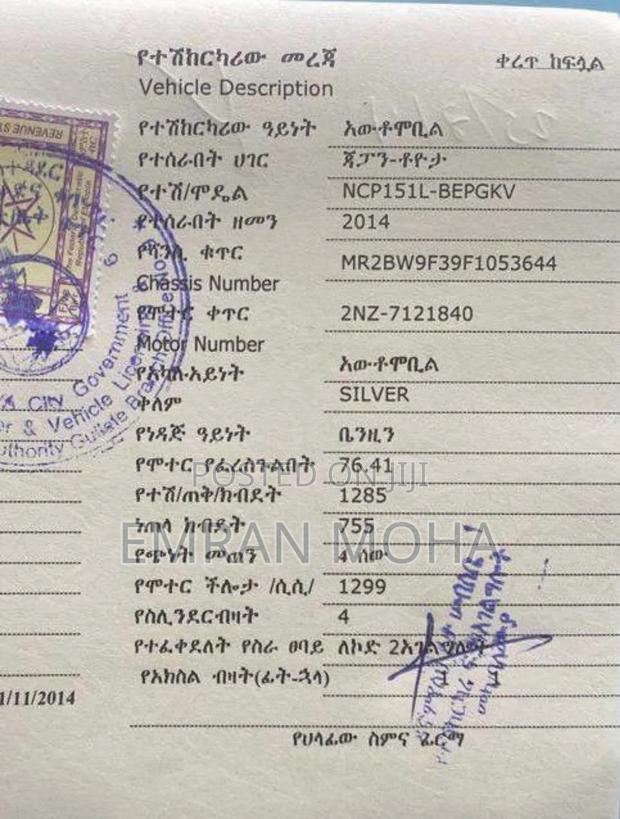 የተሽከርካሪው መረጃ ቀረጥ ከፍሏል
Vehicle Description
የተሽከርካሪው ዓይነት አውቶሞቢል
የተሰራበት ሀገር ጃፓን-ቶዮታ
የተሽ/ሞዴል NCP151L-BEPGKV
የተሰራበት ዘመን 2014
የሻንሲ ቁጥር MR2BW9F39F1053644
Chassis Number
የሞተር ቀጥር 2NZ-7121840
Motor Number
የአካል-አይነት አውቶሞቢል
ቀለም SILVER
የነዳጅ ዓይነት ቤንዚን
የሞተር የፈረስጉልበት 76.41
POSTED ON JIJI
የተሽ/ጠቅ/ክብደት 1285
ነጠላ ክብደት 755
EMRAN MOHA
የጭነት መጠን 4 ሰው
የሞተር ችሎታ /ሲሲ/ 1299
የስሊንደርብዛት 4
የተፈቀደለት የስራ ፀባይ ለኮድ 2አገልግሎት
የአክስል ብዛት(ፊት-ኋላ) 1 1
1/11/2014
የሀላፊው ስምና ፊርማ
REVENUE
City Government
& Vehicle Licensing
Authority Gullate Branch Office No
6